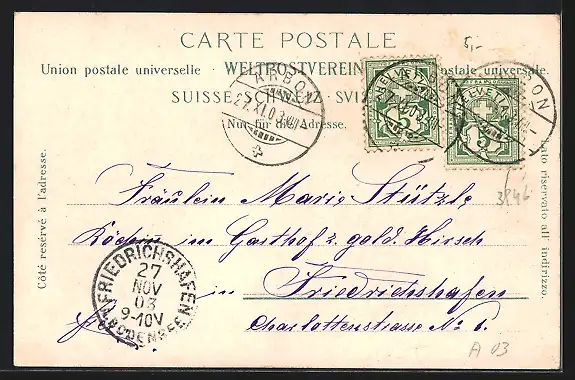 CARTE POSTALE
5,-
Union postale universelle · WELTPOSTVEREIN postale universale.
SUISSE SCHWEIZ
Nur für die Adresse.
ARBON
HELVETIA
5
HELVETIA
5
ARBON
3846
Fräulein Marie Stützle
Köchin im Gasthof z. gold. Hirsch
in Friedrichshafen
Charlottenstrasse No 6.
FRIEDRICHSHAFEN
27
NOV
03
9-10V
BODENSEE
Côté réservé à l'adresse.
Lato riservato all indirizzo.
A 03